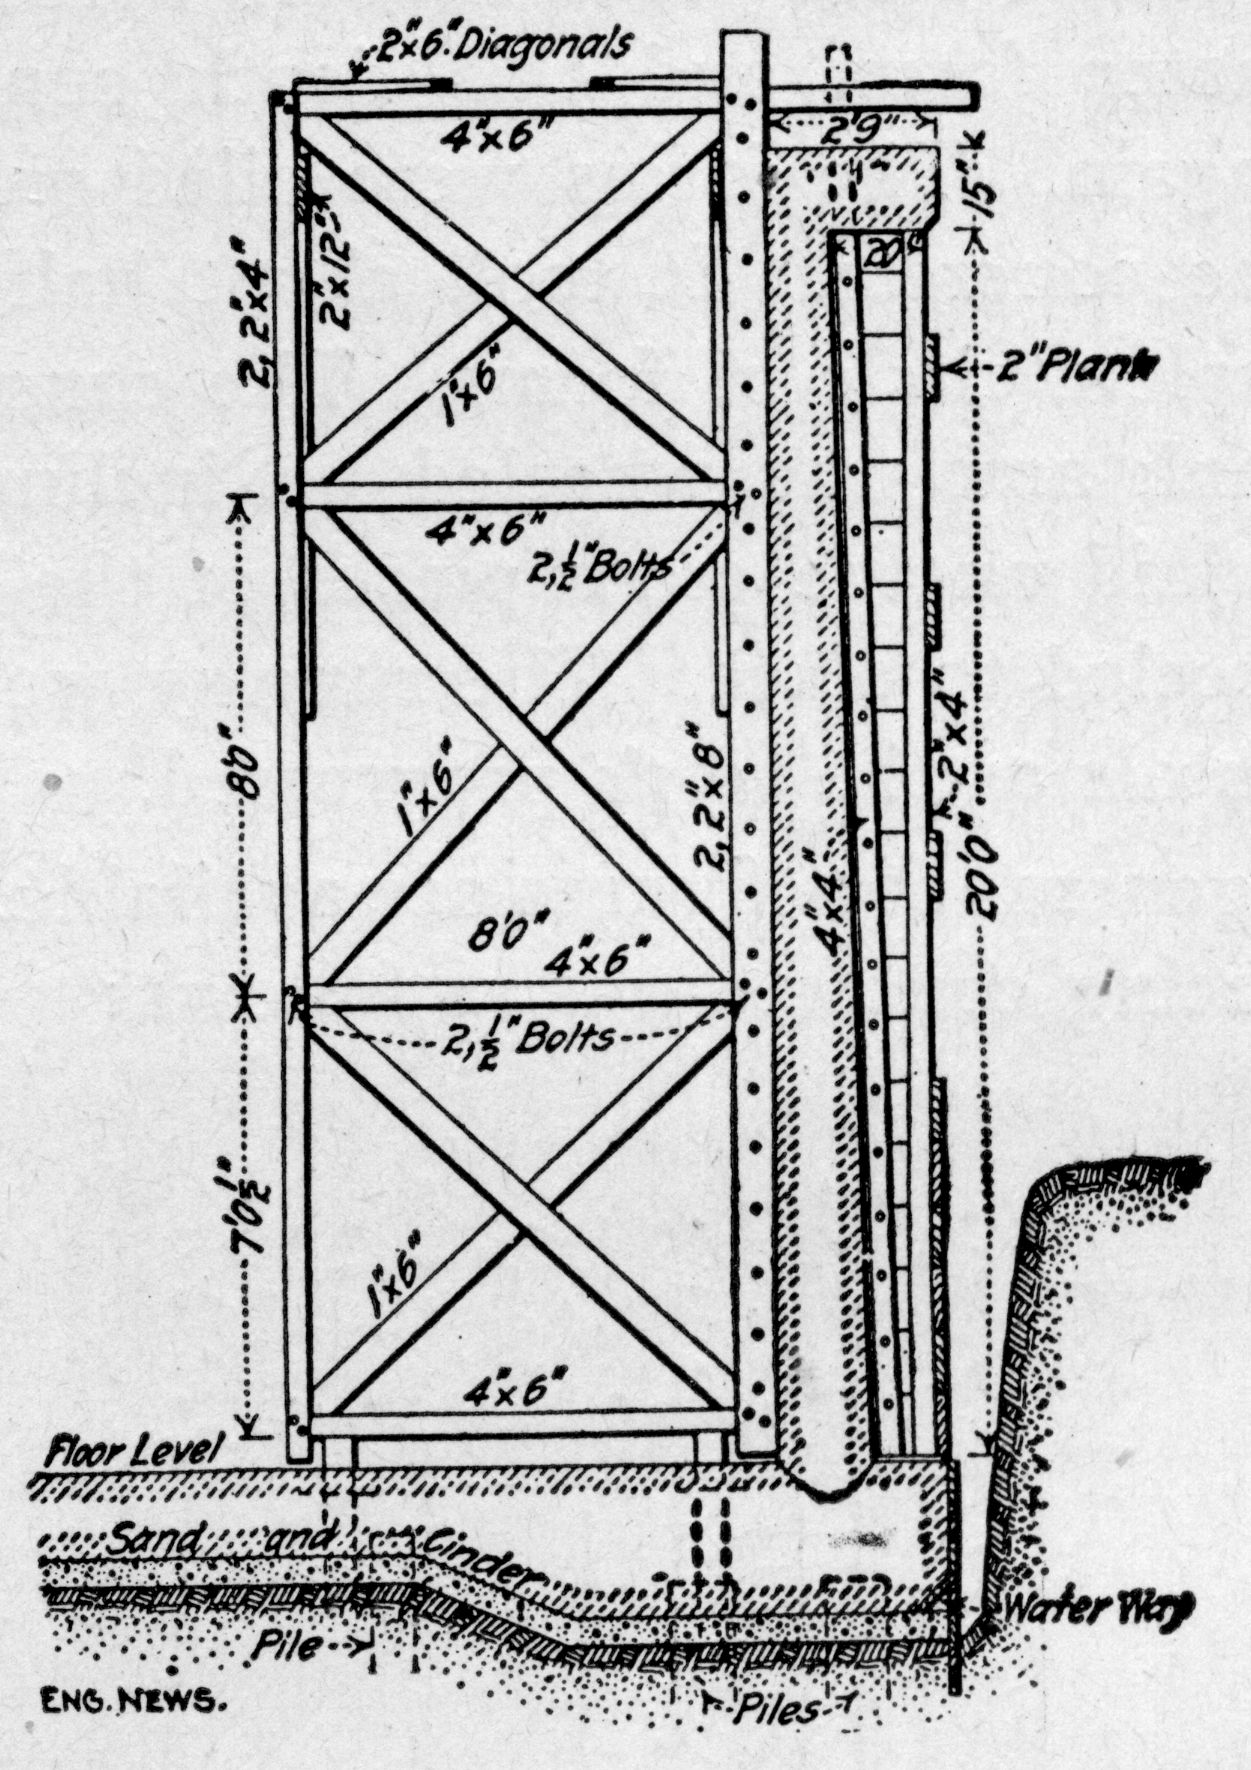 2"x6" Diagonals
4"x6"
2'9"
15"
2"x12"
20"
2, 2"x4"
2" Plank
1"x6"
4"x6"
2, 1/2" Bolts
8'0"
1"x6"
2, 2"x8"
2"x4"
20'0"
4"x4"
8'0"
4"x6"
2, 1/2" Bolts
7'0 1/2"
1"x6"
4"x6"
Floor Level
Sand and Cinder
Water Way
Pile
Piles
ENG. NEWS.